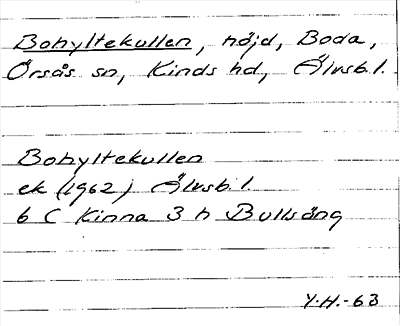 Bohyltekullen, höjd, Boda,
Örsås sn, Kinds hd, Älvsb. l.
Bohyltekullen
ek (1962) Älvsb. l.
6 C Kinna 3 h Bullsäng
Y.H.-63